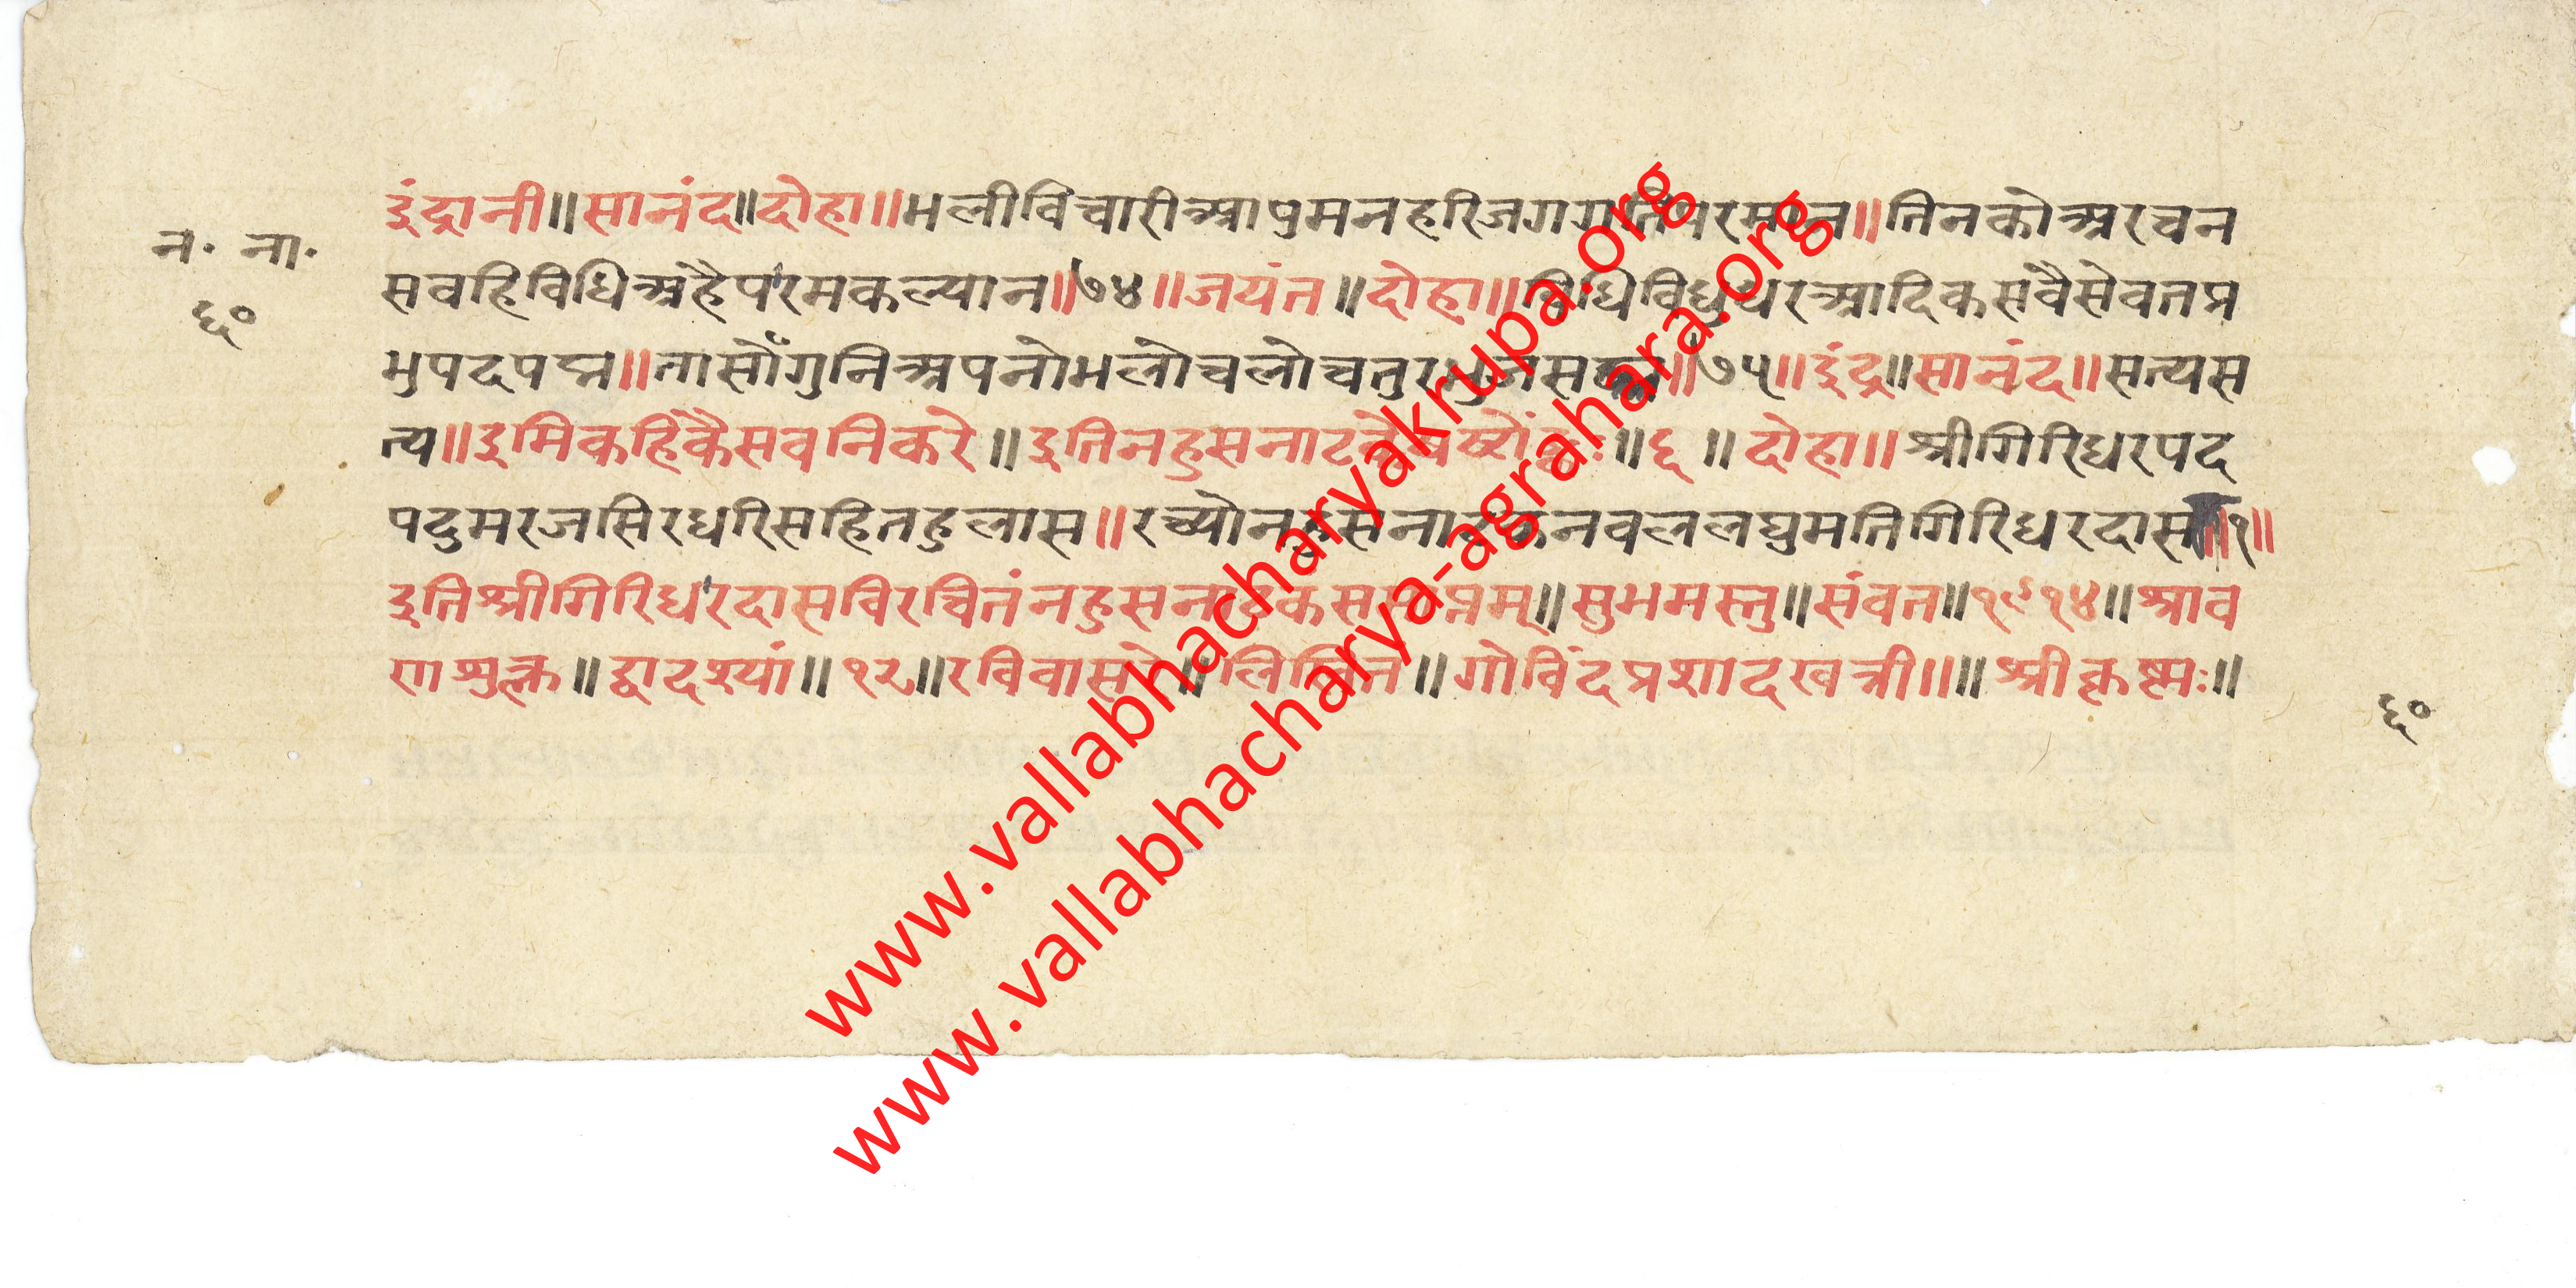 न॰ ना॰
६०
इंद्रानी॥सानंद॥दोहा॥भलीविचारीआपुमनहरिजगगतिपरमान॥तिनकोअरचन
सवहिविधिअहैपरमकल्यान॥७४॥जयंत॥दोहा॥विधिविधुथरआदिकसवैसेवतप्र
भुपदपद्म॥तासोँगुनिअपनोभलोचलोचतुरभुजसद्म॥७५॥इंद्र॥सानंद॥सत्यस
त्य॥इमिकहिकैसवनिकरे॥इतिनहुसनाटकेषष्टोंकः॥६॥दोहा॥श्रीगिरिधरपद
पदुमरजसिरधरिसहितहुलास॥रच्योनहुसनाटकनवललघुमतिगिरिधरदास॥१॥
इतिश्रीगिरिधरदासविरचितंनहुसनाटकंसमाप्तम्॥सुभमस्तु॥संवत॥१९१४॥श्राव
णशुक्ल॥द्वादश्यां॥१२॥रविवासरे॥लिखित॥गोविंदप्रशादखत्री॥॥श्रीकृष्मः॥
६०
www.vallabhacharyakrupa.org
www.vallabhacharya-agrahara.org